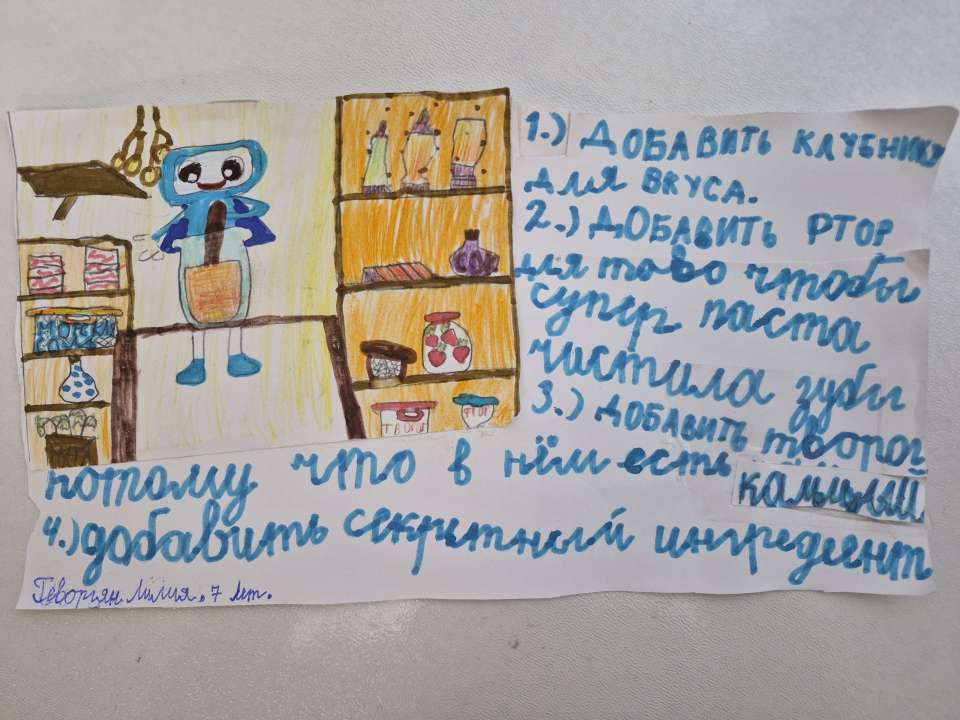 1.) ДОБАВИТЬ КЛУБНИКУ
ДЛЯ ВКУСА.
2.) ДОБАВИТЬ РТОР
для тово чтобы
супер паста
чистила зубы
3.) ДОБАВИТЬ творог
потому что в нём есть
кальций
4.) добавить секретный ингредеент
Геворгян Лилия. 7 лет.
МОРСКАЯ
ТВОРОГ
ФТОР